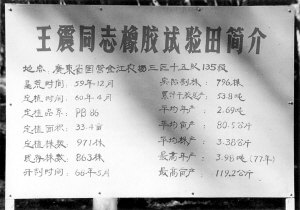 王震同志橡胶试验田简介
地点: 广东省国营金江农场三区十五队135段
垦荒时间: 59年12月 实际割株: 796株
定植时间: 60年4月 累计干胶产: 53.8吨
定植品系: PB86 平均年产: 2.69吨
定植面积: 33.4亩 平均亩产: 80.5公斤
定植株数: 971株 平均株产: 3.38公斤
现存株数: 863株 最高年产: 3.98吨(77年)
开割时间: 66年5月 最高亩产: 119.2公斤